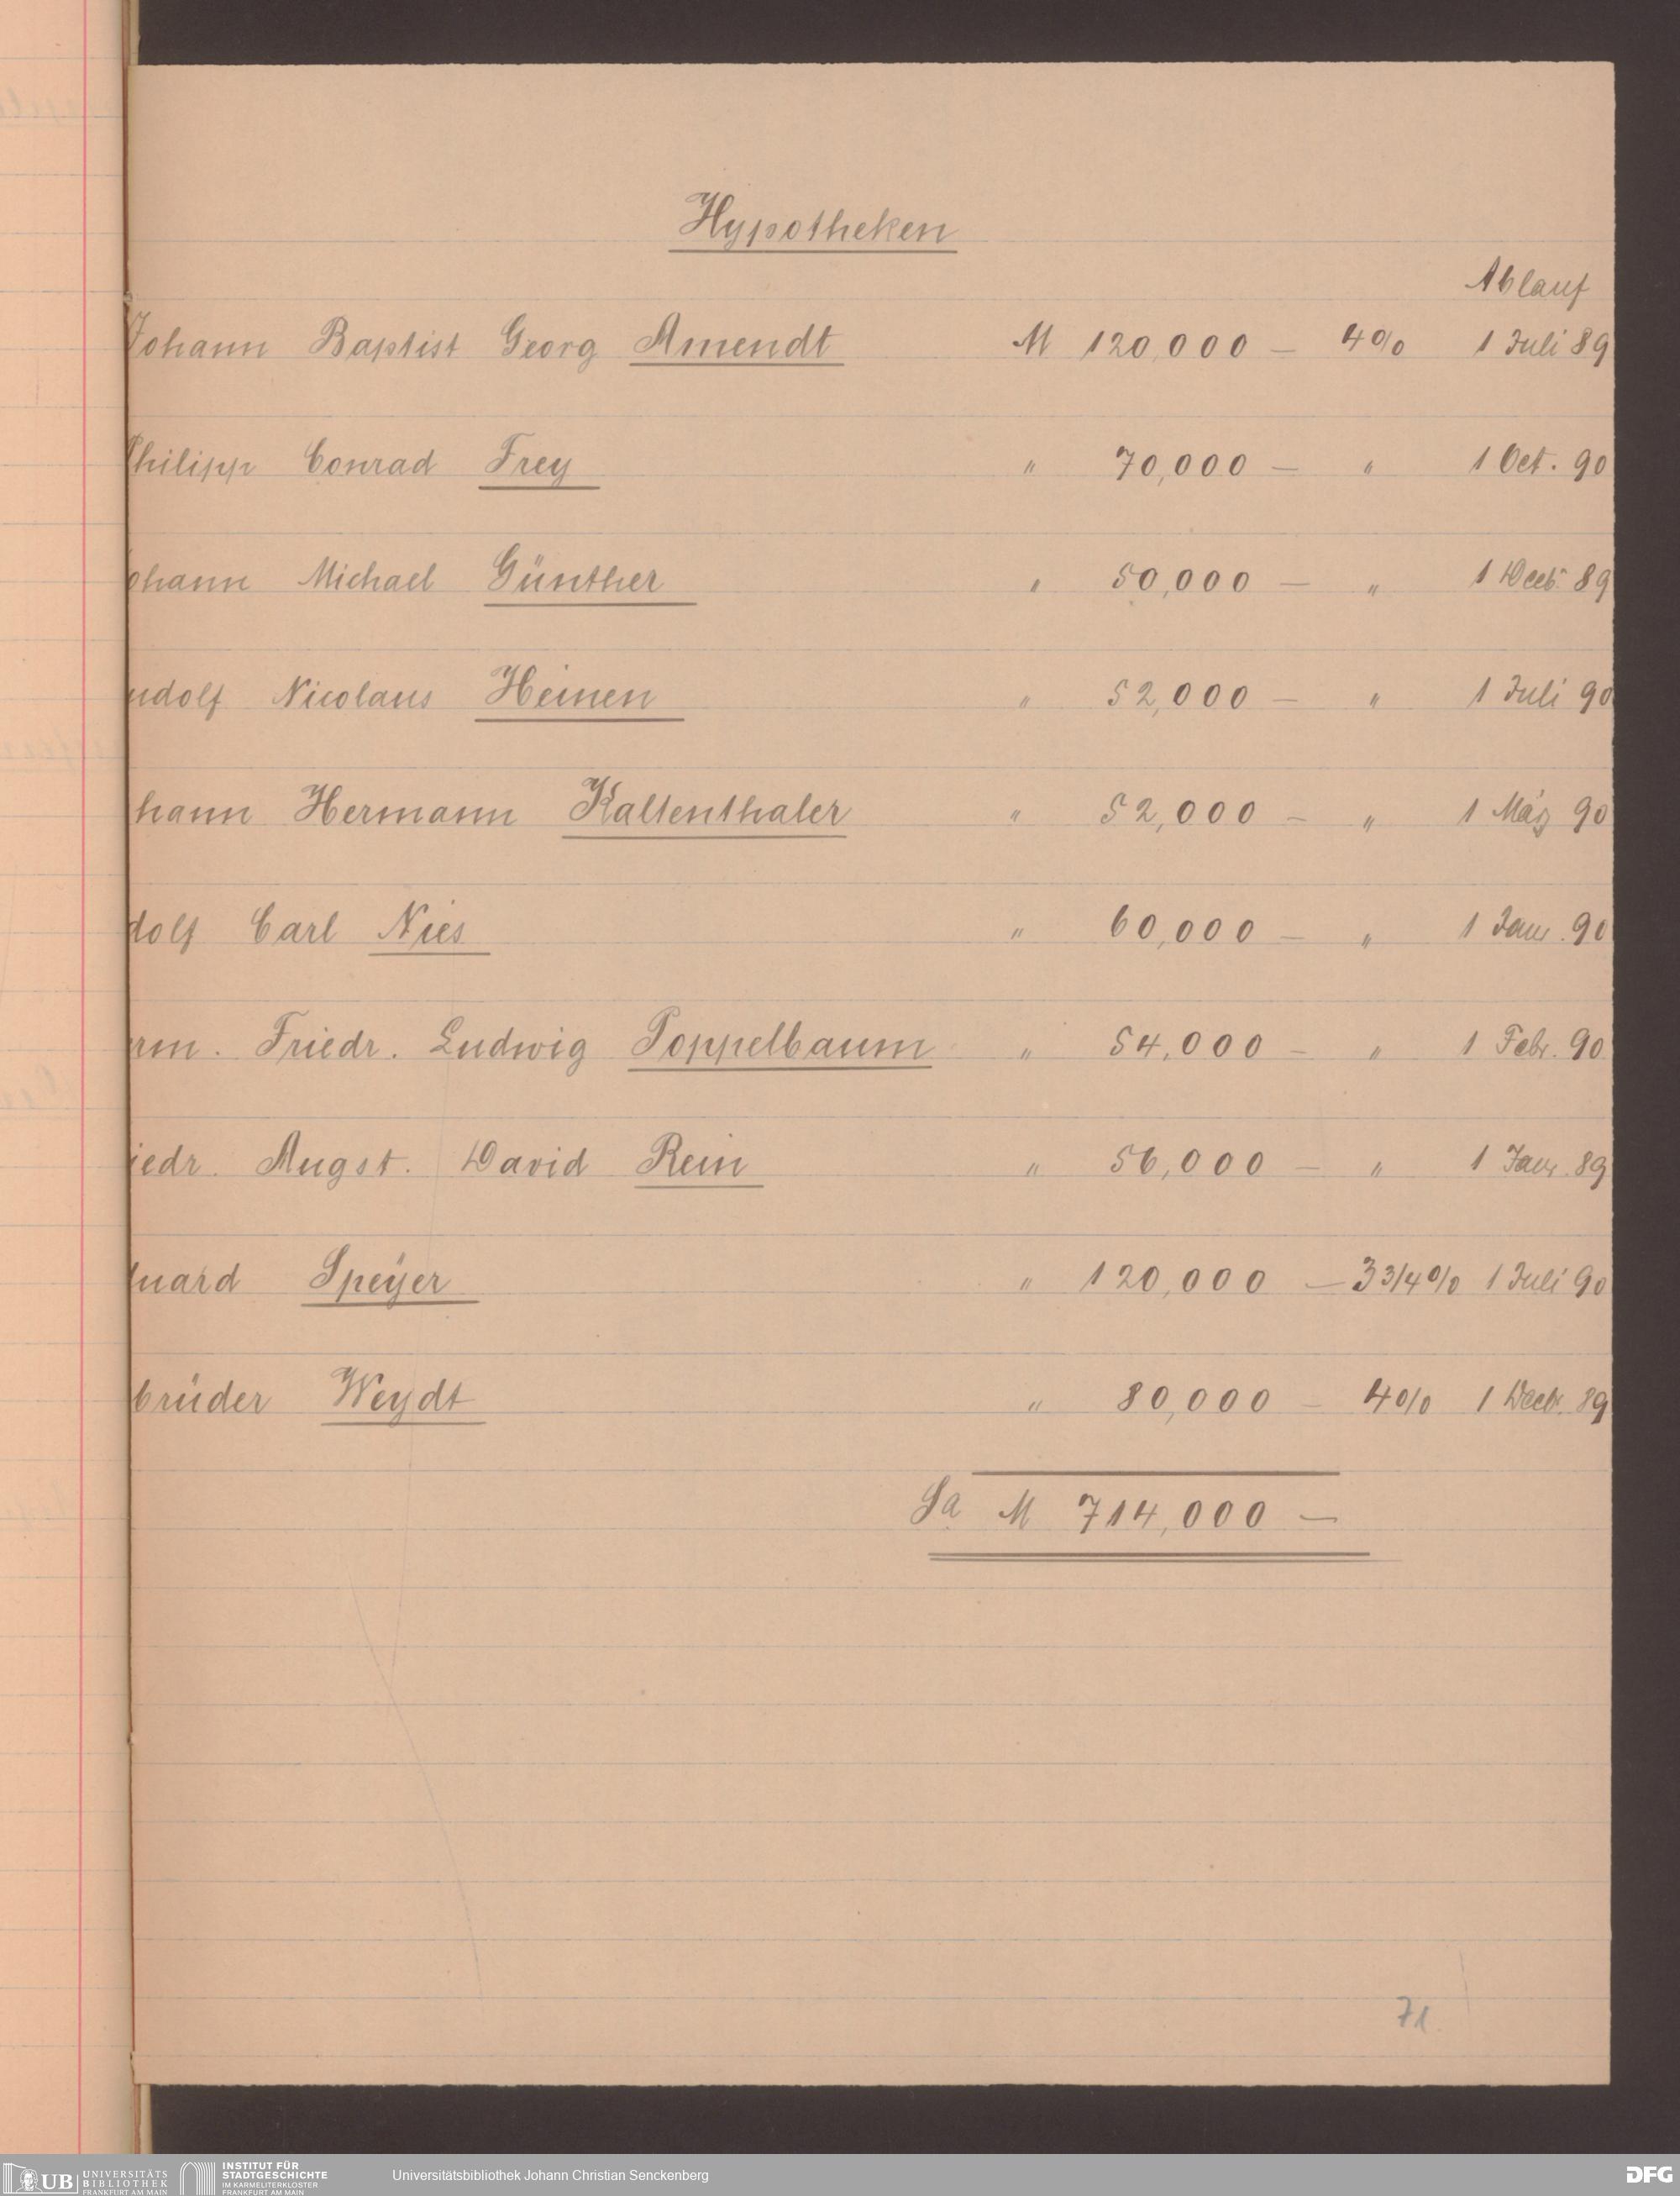 Hypotheken
Ablauf
Johann Baptist Georg Amendt M 120,000 — 4% 1 Juli 89
Philipp Conrad Frey " 70,000 — " 1 Oct. 90
ohann Michael Günther " 50,000 — " 1 Decb. 89
udolf Nicolaus Heinen " 52,000 — " 1 Juli 90
hann Hermann Kaltenthaler " 52,000 — " 1 März 90
dolf Carl Nies " 60,000 — " 1 Jan. 90
rm. Friedr. Ludwig Poppelbaum " 54,000 — " 1 Febr. 90
iedr. Augst. David Rein " 56,000 — " 1 Jan. 89
uard Speyer " 120,000 — 3 3/4% 1 Juli 90
brüder Weydt " 80,000 — 4% 1 Decb. 89
Sa M 714,000 —
71
UB UNIVERSITÄTS BIBLIOTHEK FRANKFURT AM MAIN
INSTITUT FÜR STADTGESCHICHTE IM KARMELITERKLOSTER FRANKFURT AM MAIN
Universitätsbibliothek Johann Christian Senckenberg
DFG